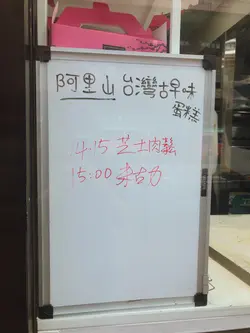 阿里山 台灣古早味
蛋糕
14:15 芝士肉鬆
15:00 朱古力